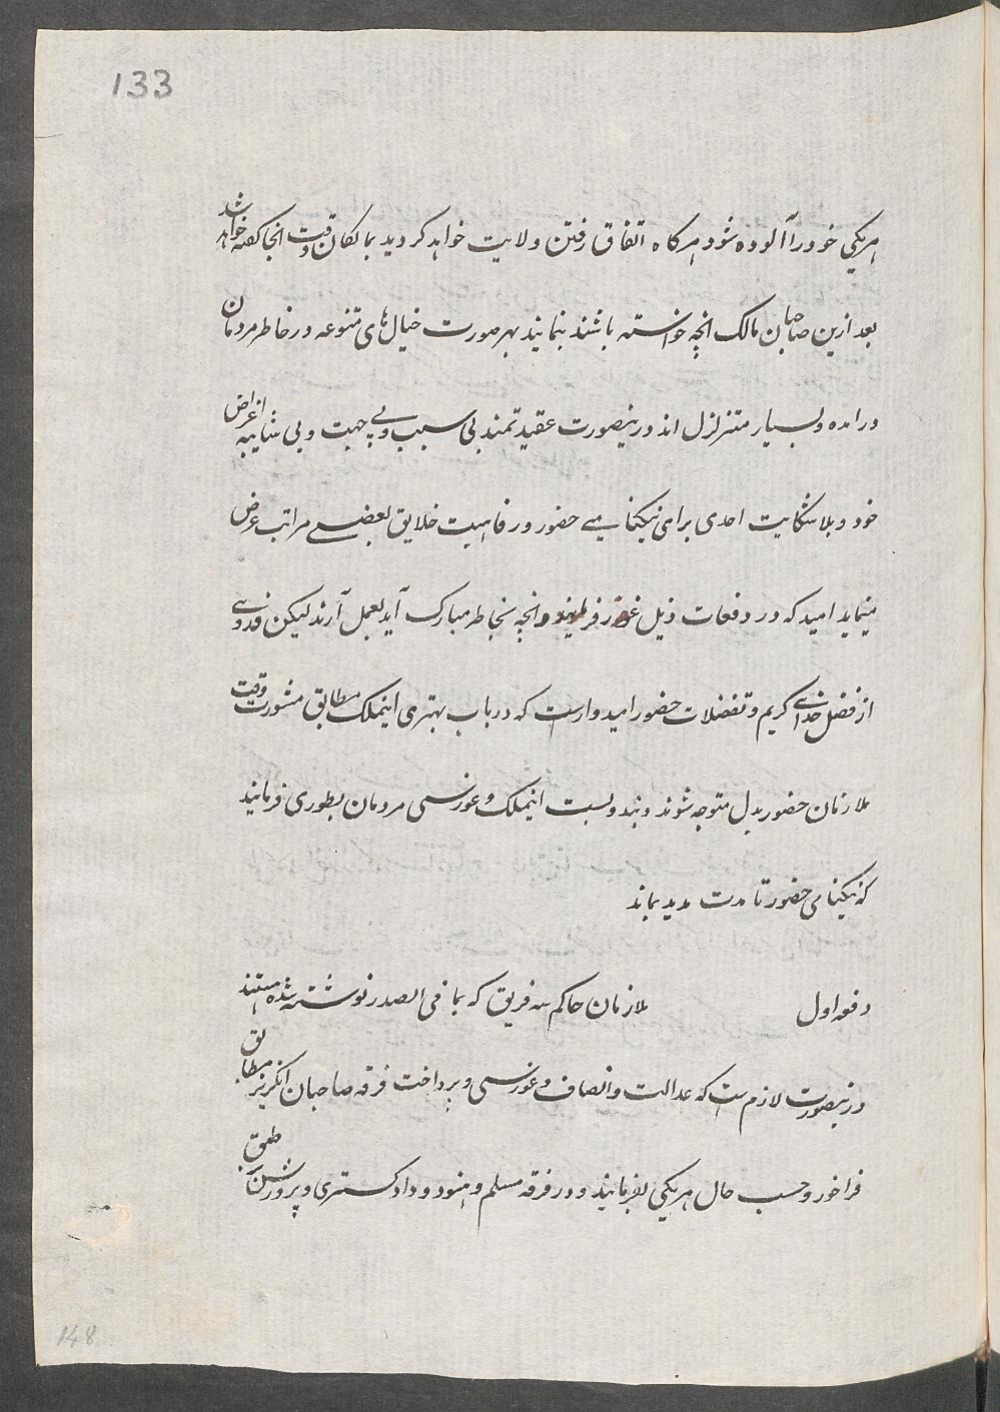 133
هریکی خود را آلوده شود هرگاه اتفاق رفتن ولایت خواهد گردید بمالکان وقت انجا گفته خواهد شد
بعد ازین صاحبان مالک انچه خواسته باشند بنمایند بهرصورت خیال های متنوعه در خاطر مردمان
درامده و بسیار متزلزل اند درینصورت عقیدتمند بی سبب و بی جهت و بی شایبه اغراض
خود و بلا شکایت احدی برای نیکنامی حضور و رفاهیت خلایق بعضی مراتب عرض
مینماید امید که در دفعات ذیل غور فرمایند و انچه بخاطر مبارک آید بعمل آرند لیکن فدوی
از فضل خدای کریم و تفضلات حضور امیدوارست که در باب بهتری اینملک مطابق مشورت وقت
ملازمان حضور بدل متوجه شوند و بندوبست اینملک و غوررسی مردمان بطوری فرمایند
که نیکنامی حضور تا مدت مدید بماند
دفعه اول ملازمان حاکم سه فریق که بما فی الصدر نوشته شده هستند
درینصورت لازم است که عدالت و انصاف و غوررسی و پرداخت فرقه صاحبان انگریز مطابق
فراخور و حسب حال هریکی بفرمایند و در فرقه مسلم و هنود و دادگستری و پرورش طبق
148